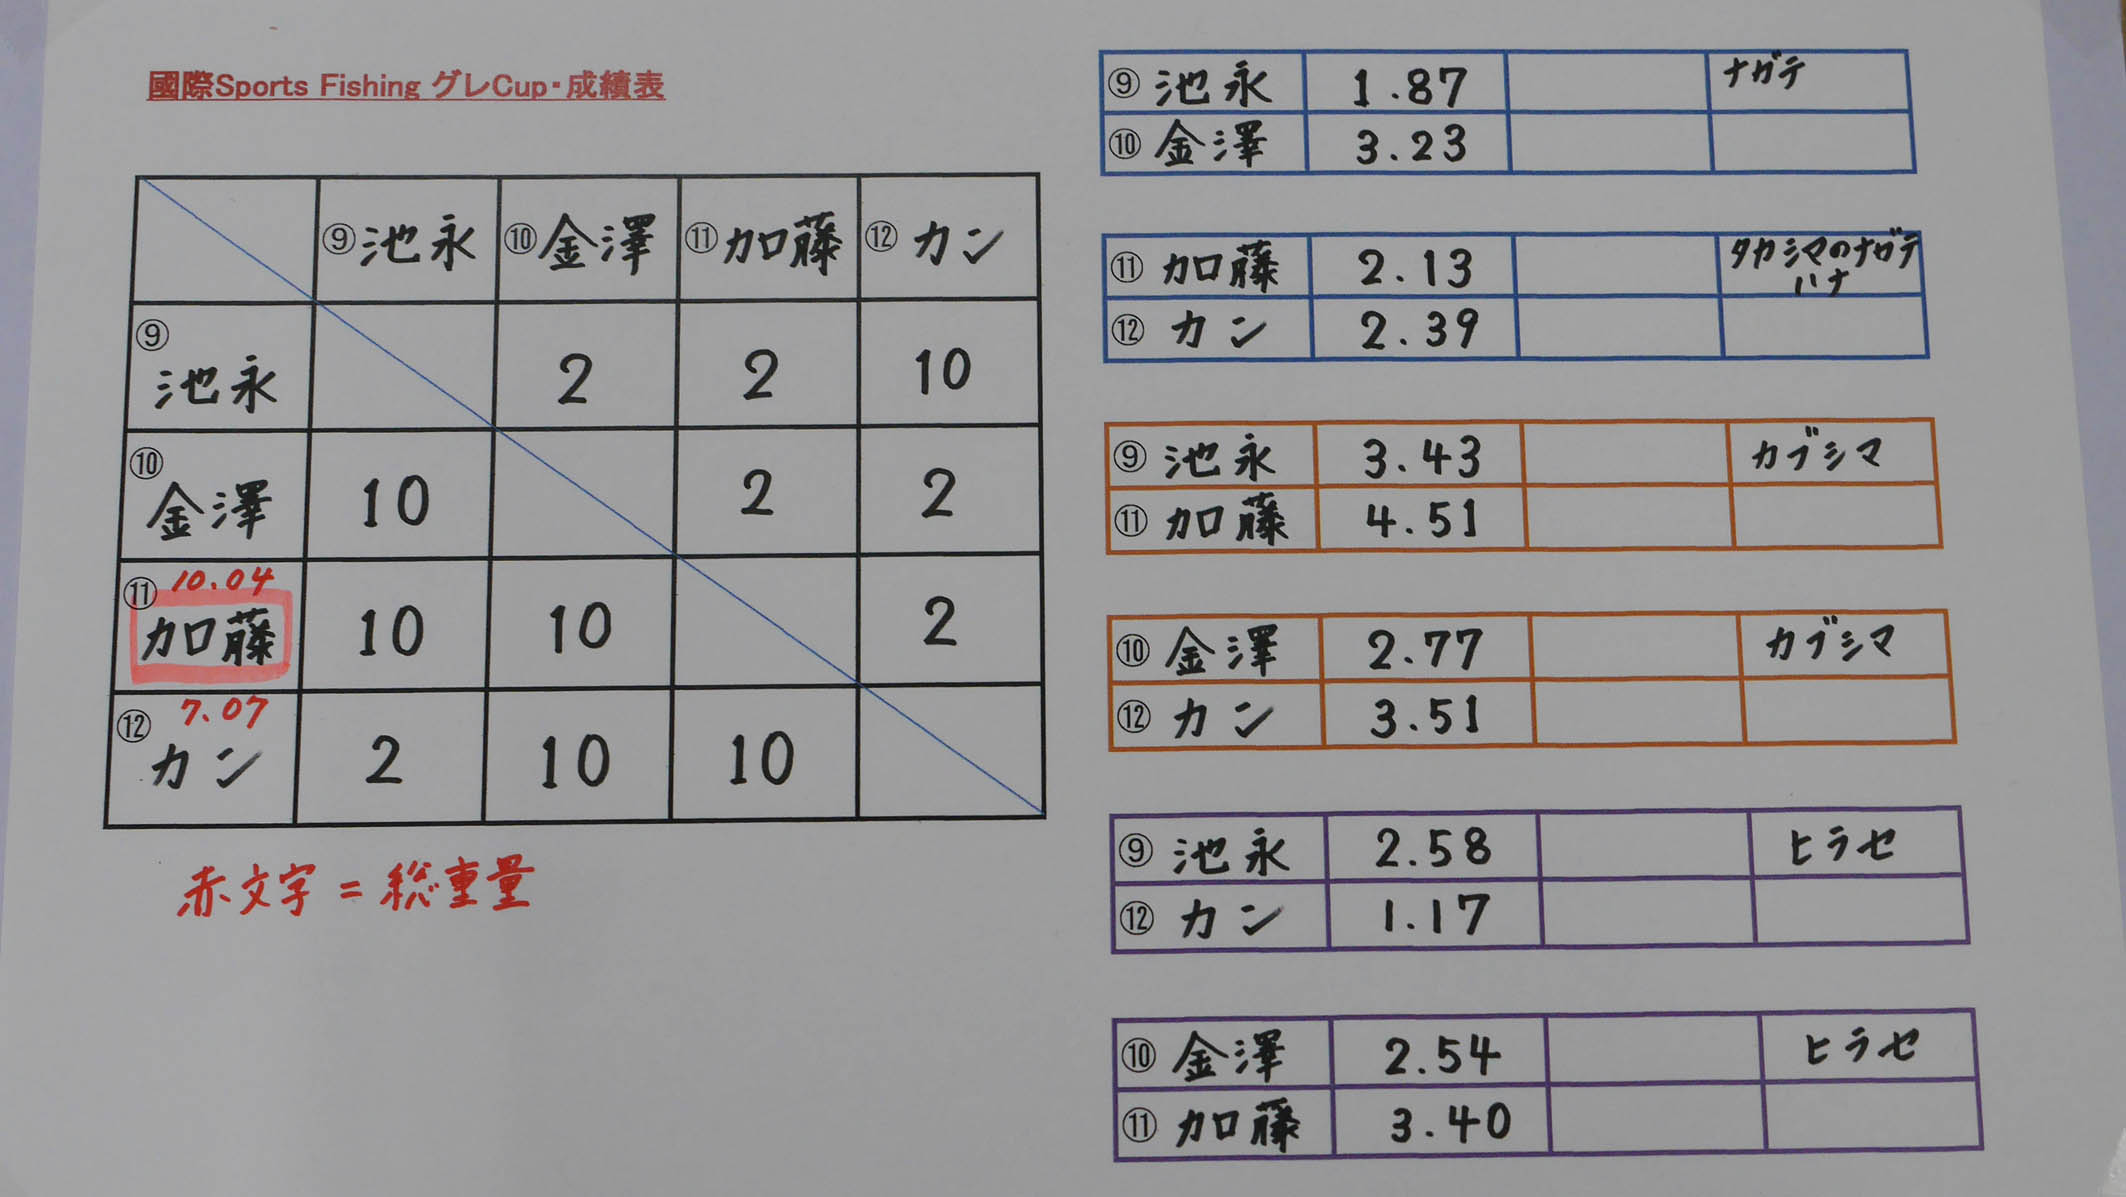 國際Sports Fishing グレCup・成績表
⑨池永 ⑩金澤 ⑪加藤 ⑫カン
⑨池永 2 2 10
⑩金澤 10 2 2
⑪加藤 10.04 10 10 2
⑫カン 7.07 2 10 10
赤文字=総重量
⑨池永 1.87 ナガテ
⑩金澤 3.23
⑪加藤 2.13 タカシマのナガテ
ハナ
⑫カン 2.39
⑨池永 3.43 カブシマ
⑪加藤 4.51
⑩金澤 2.77 カブシマ
⑫カン 3.51
⑨池永 2.58 ヒラセ
⑫カン 1.17
⑩金澤 2.54 ヒラセ
⑪加藤 3.40